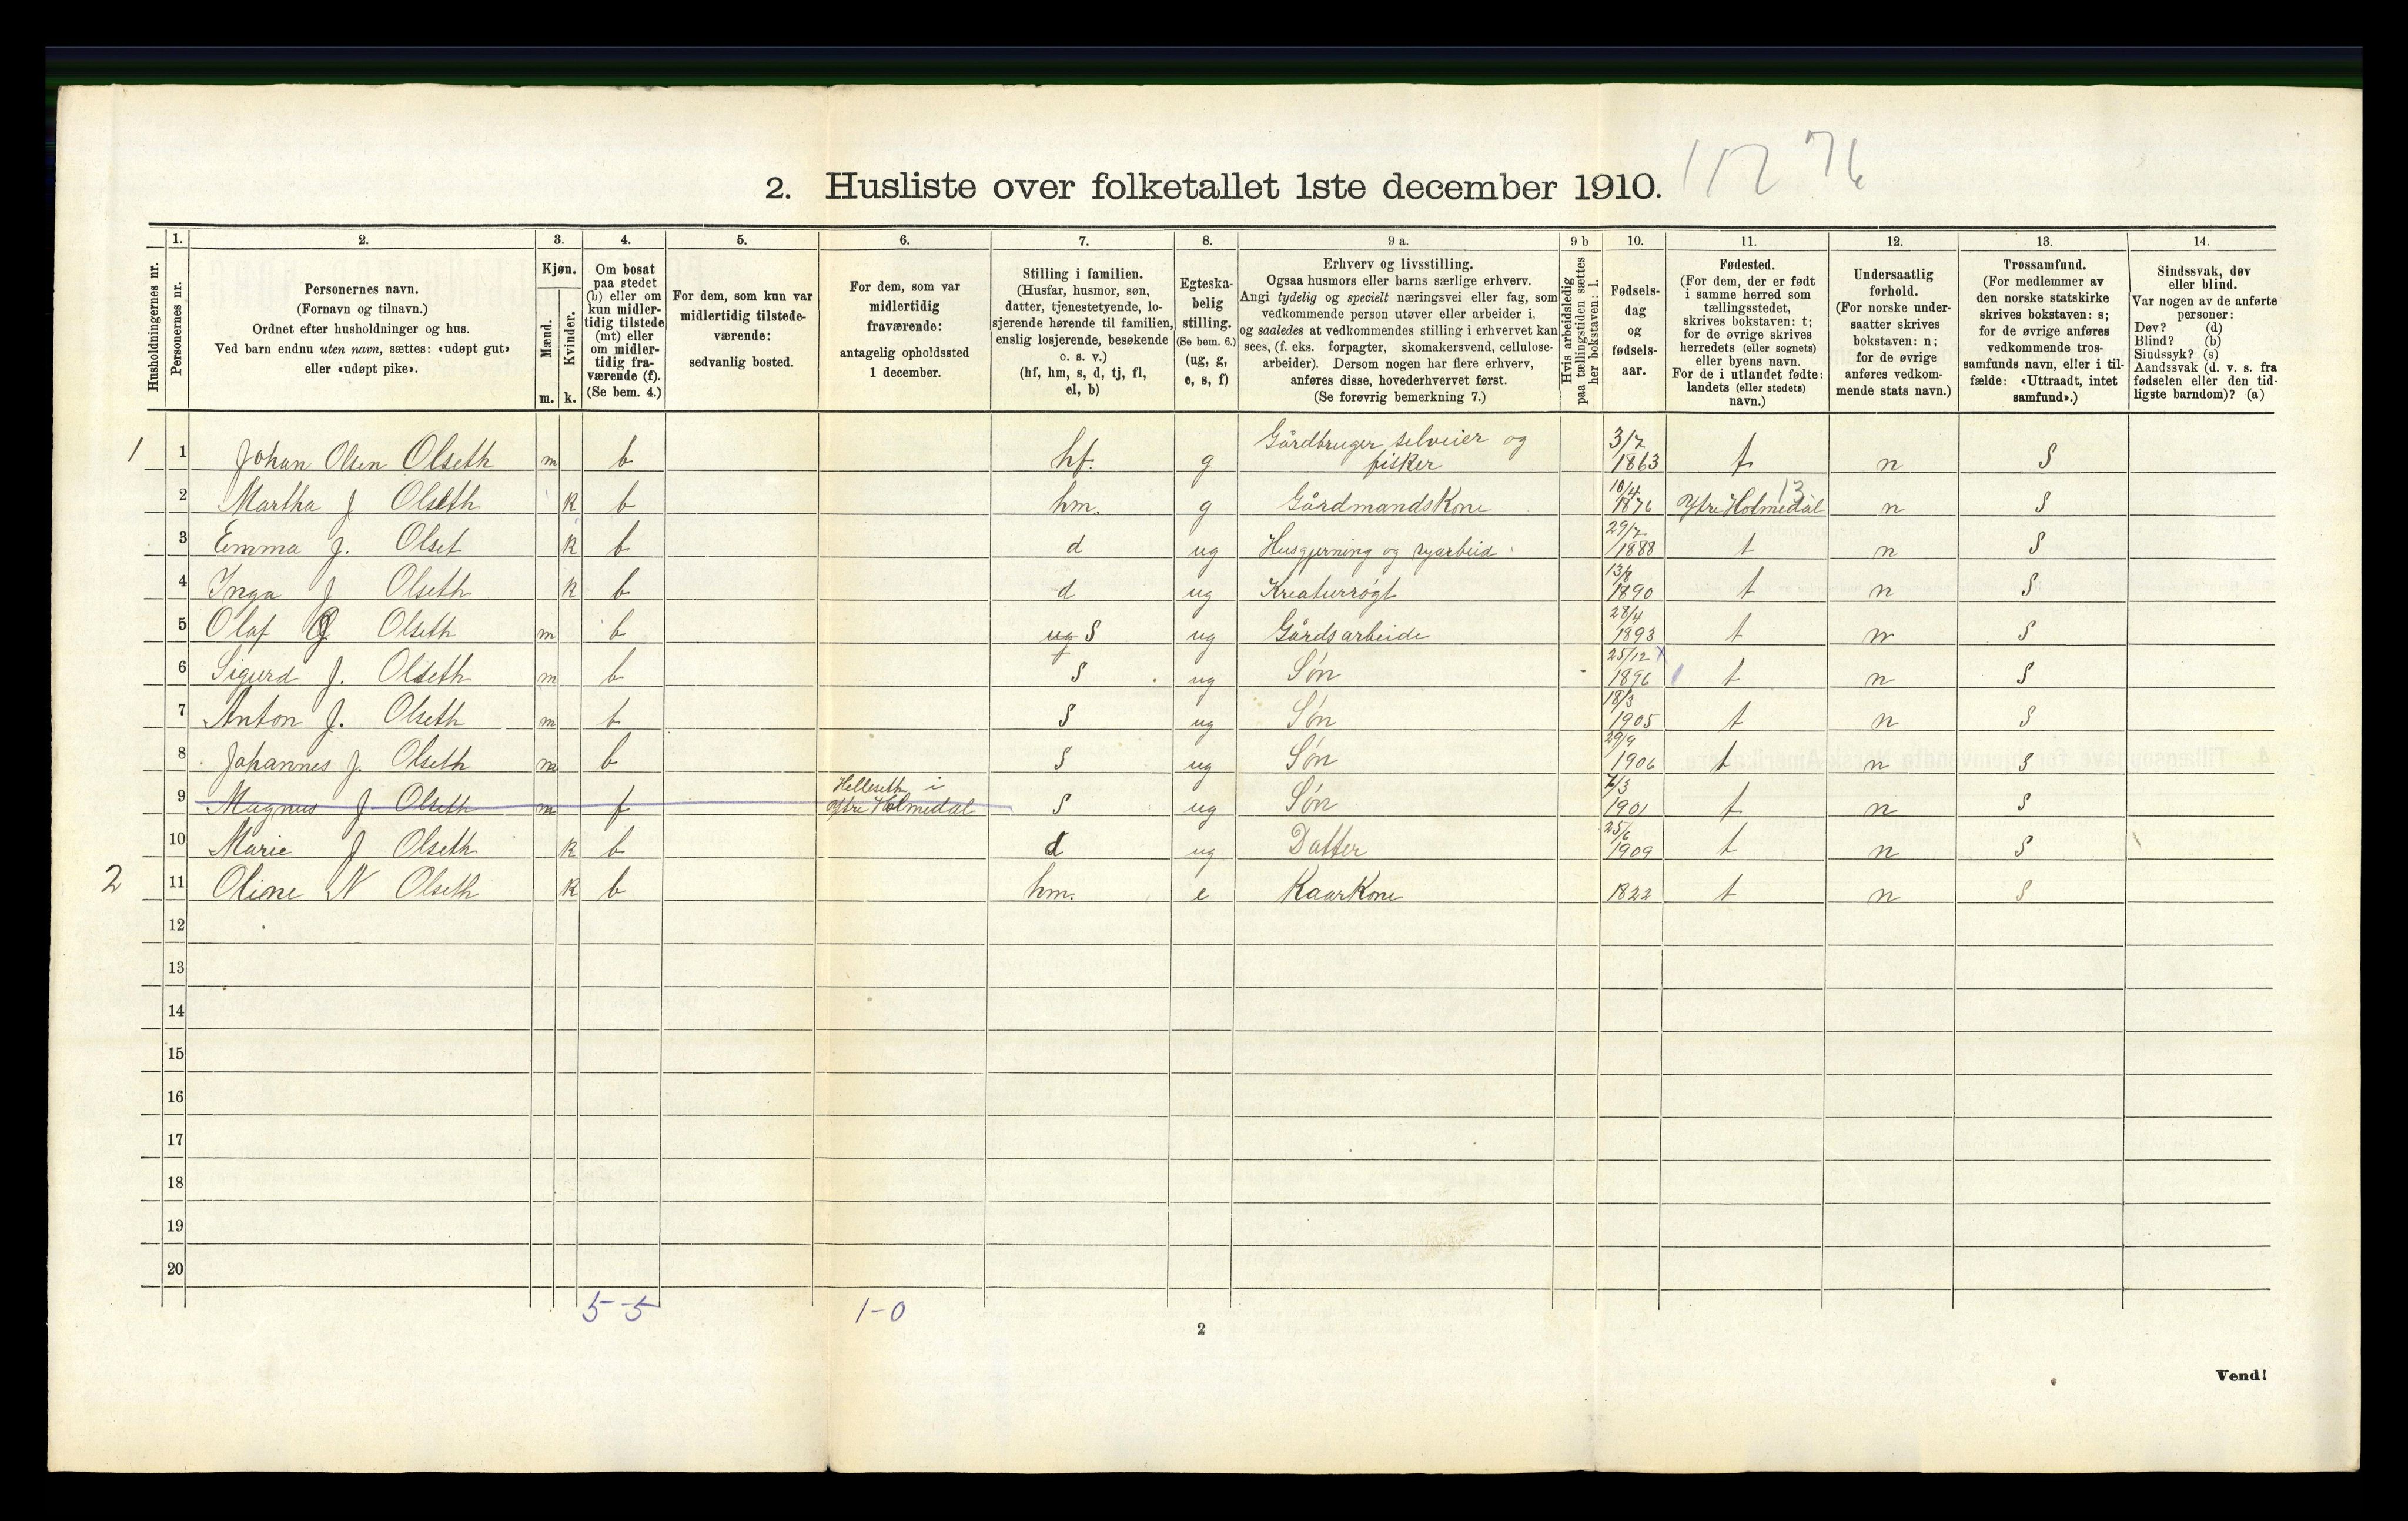 117 76
2. Husliste over folketallet 1ste december 1910.
Husholdningernes nr.
1.
Personernes nr.
2.
Personernes navn.
(Fornavn og tilnavn.)
Ordnet efter husholdninger og hus.
Ved barn endnu uten navn, sættes: «udøpt gut»
eller «udøpt pike».
3.
Kjøn.
Mænd.
Kvinder.
m. k.
4.
Om bosat
paa stedet
(b) eller om
kun midler-
tidig tilstede
(mt) eller
om midler-
tidig fra-
værende (f).
(Se bem. 4.)
5.
For dem, som kun var
midlertidig tilstede-
værende:
sedvanlig bosted.
6.
For dem, som var
midlertidig
fraværende:
antagelig opholdssted
1 december.
7.
Stilling i familien.
(Husfar, husmor, søn,
datter, tjenestetyende, lo-
sjerende hørende til familien,
enslig losjerende, besøkende
o. s. v.)
(hf, hm, s, d, tj, fl,
el, b)
8.
Egteska-
belig
stilling.
(Se bem. 6.)
(ug, g,
e, s, f)
9 a.
Erhverv og livsstilling.
Ogsaa husmors eller barns særlige erhverv.
Angi tydelig og specielt næringsvei eller fag, som
vedkommende person utøver eller arbeider i,
og saaledes at vedkommendes stilling i erhvervet kan
sees, (f. eks. forpagter, skomakersvend, cellulose-
arbeider). Dersom nogen har flere erhverv,
anføres disse, hovederhvervet først.
(Se forøvrig bemerkning 7.)
9 b
Hvis arbeidsledig
paa tællingstiden sættes
her bokstaven: l.
10.
Fødsels-
dag
og
fødsels-
aar.
11.
Fødested.
(For dem, der er født
i samme herred som
tællingsstedet,
skrives bokstaven: t;
for de øvrige skrives
herredets (eller sognets)
eller byens navn.
For de i utlandet fødte:
landets (eller stedets)
navn.)
12.
Undersaatlig
forhold.
(For norske under-
saatter skrives
bokstaven: n;
for de øvrige
anføres vedkom-
mende stats navn.)
13.
Trossamfund.
(For medlemmer av
den norske statskirke
skrives bokstaven: s;
for de øvrige anføres
vedkommende tros-
samfunds navn, eller i til-
fælde: «Uttraadt, intet
samfund».)
14.
Sindssvak, døv
eller blind.
Var nogen av de anførte
personer:
Døv? (d)
Blind? (b)
Sindssyk? (s)
Aandssvak (d. v. s. fra
fødselen eller den tid-
ligste barndom)? (a)
1 1 Johan Olsen Olseth m b hf. g Gårdbruger selveier og fisker 3/7 1863 t n S
2 Martha J Olseth k b hm. g GårdmandsKone 10/4 1876 Ytre Holmedal 13 n S
3 Emma J. Olset k b d ug Husgjerning og syarbeid 29/7 1888 t n S
4 Inga J Olseth k b d ug Kreaturrøgt 13/8 1890 t n S
5 Olaf J Olseth m b ug S ug Gårdsarbeide 28/4 1893 t n S
6 Sigurd J. Olseth m b S ug Søn 25/12 1896 t n S
7 Anton J. Olseth m b S ug Søn 18/3 1905 t n S
8 Johannes J. Olseth m b S ug Søn 29/9 1906 t n S
9 Magnus J Olseth m f Helleseth i Ytre Holmedal S ug Søn 6/3 1901 t n S
10 Marie J Olseth k b d ug Datter 25/6 1909 t n S
2 11 Oline N Olseth k b hm. e KaarKone 1822 t n S
12
13
14
15
16
17
18
19
20
5-5 1-0
2
Vend!